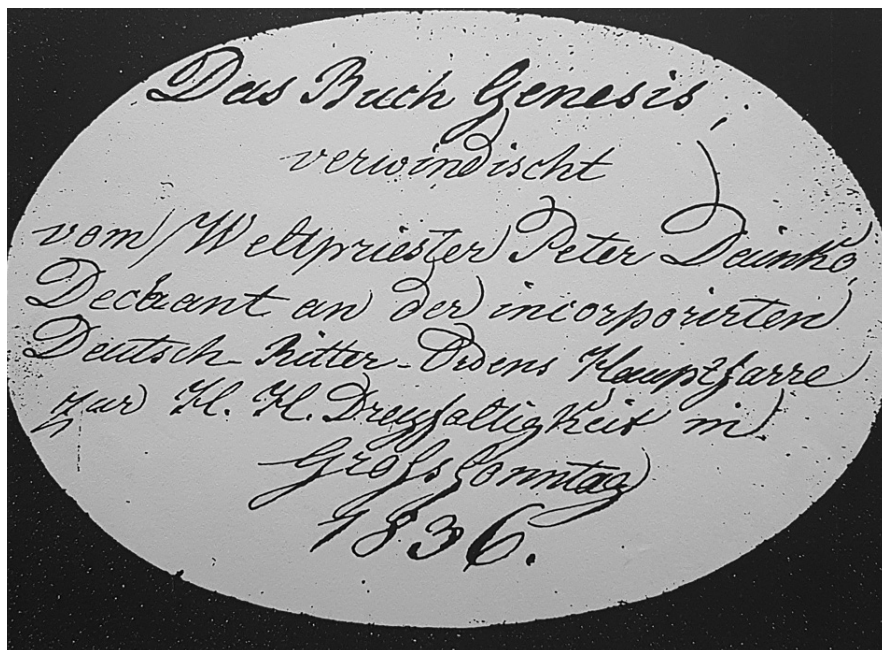 Das Buch Genesis,
verwindischt
vom Weltpriester Peter Dainko,
Dechant an der incorporirten
Deutsch-Ritter-Ordens Hauptpfarre
zur H. H. Dreyfaltigkeit in
Großsonntag
1836.